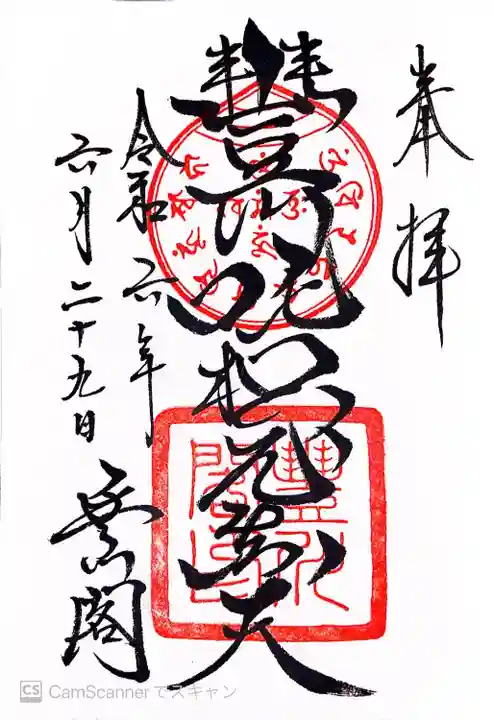 奉拝
豐川吒枳尼眞天
豐川閣印
令和六年
六月二十九日
閣
CS CamScannerでスキャン